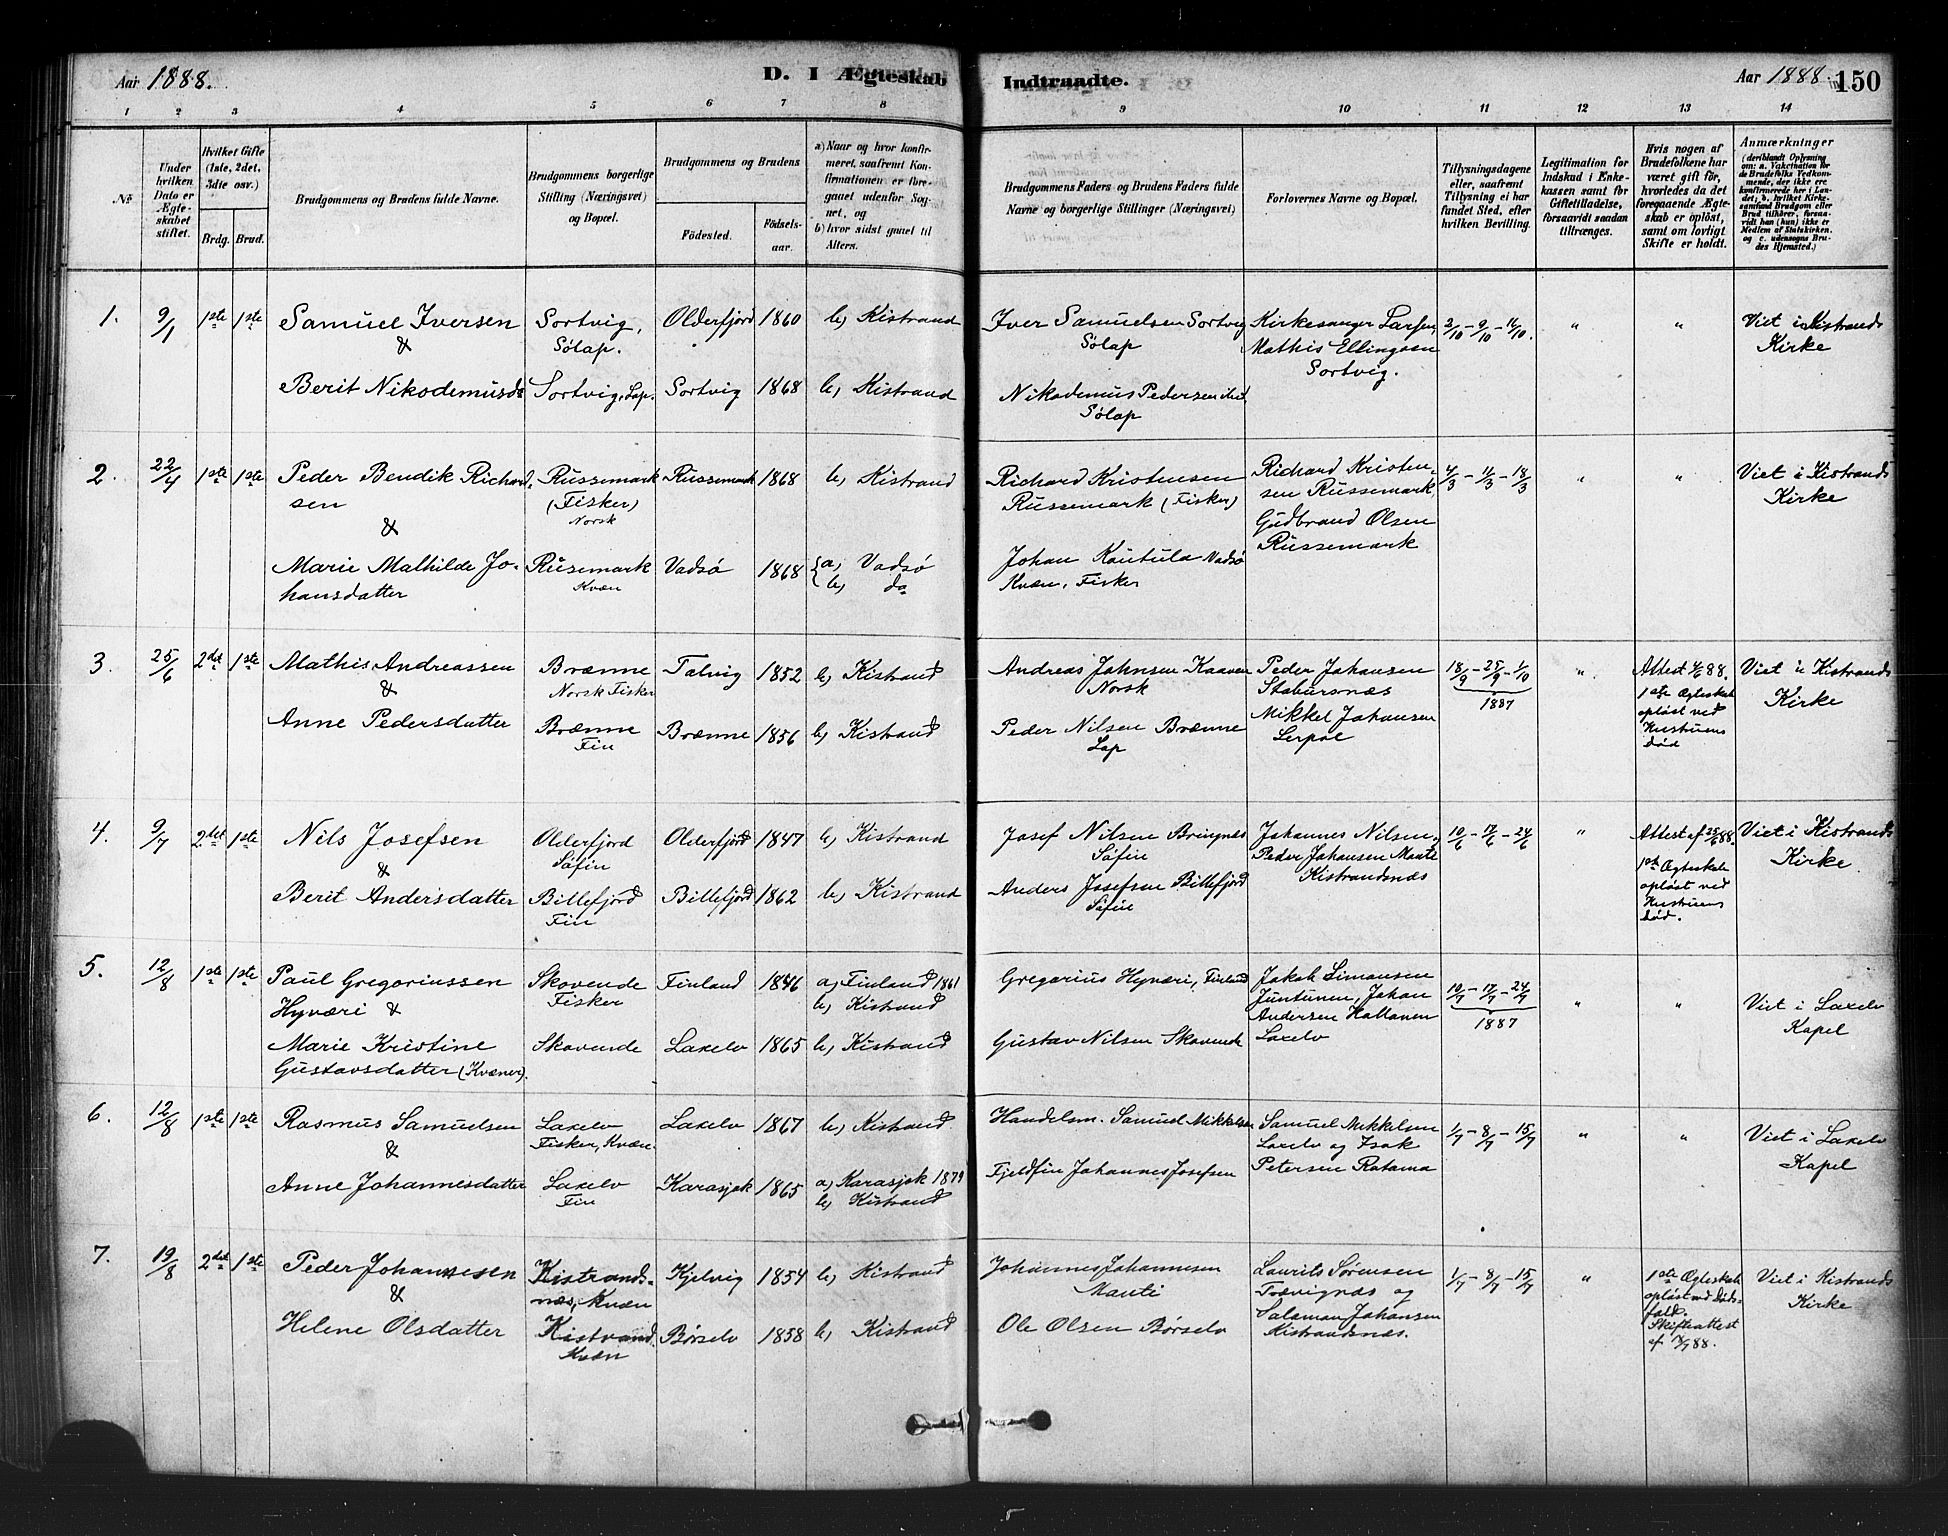 Aar 1888. D. I Ægteskab
1 2 3 4 5 6 7 8
No.
Under hvilken Dato er Ægteskabet stiftet.
Hvilket Gifte (1ste, 2det, 3die osv.)
Brdg. Brud.
Brudgommens og Brudens fulde Navne.
Brudgommens borgerlige Stilling (Næringsvei) og Bopæl.
Brudgommens og Brudens
Födested. Födselsaar.
a) Naar og hvor konfirmeret, saafremt Konfirmationen er foregaaet udenfor Sognet, og
b) hvor sidst gaaet til Alters.
1. 9/1 1ste 1ste Samuel Iversen Sortvig, Olderfjord 1860 b) Kistrand
& Sølap.
Berit Nikodemusd. Sortvig, Lap. Sortvig 1868 b) Kistrand
2. 22/4 1ste 1ste Peder Bendik Richard- Russemark Russemark 1868 b) Kistrand
sen (Fisker)
& Norsk
Marie Mathilde Jo- Russemark Vadsø 1868 a) Vadsø
hansdatter Kvæn b) do
3. 25/6 2det 1ste Mathis Andreassen Brænne Talvig 1852 b) Kistrand
& Norsk Fisker
Anne Pedersdatter Brænne Brænne 1856 b) Kistrand
Fin
4. 9/7 2det 1ste Nils Josefsen Olderfjord Olderfjord 1847 b) Kistrand
& Søfin
Berit Andersdatter Billefjord Billefjord 1862 b) Kistrand
Fin
5. 12/8 1ste 1ste Paul Gregoriussen Skovende Finland 1846 a) Finland 1861
Hyværi & Fisker b) Kistrand
Marie Kristine Skovende Laxelv 1865 b) Kistrand
Gustavsdatter (Kvæner).
6. 12/8 1ste 1ste Rasmus Samuelsen Laxelv Laxelv 1867 b) Kistrand
& Fisker, Kvæn.
Anne Johannesdatter Laxelv Karasjok 1865 a) Karasjok 1879
Fin b) Kistrand
7. 19/8 2det 1ste Peder Johannesen Kistrands- Kjelvig 1854 b) Kistrand
& næs, Kvæn
Helene Olsdatter Kistrand. Børselv 1858 b) Kistrand
Kvæn
Indtraadte. Aar 1888. 150
9 10 11 12 13 14
Brudgommens Faders og Brudens Faders fulde Navne og borgerlige Stillinger (Næringsvei)
Forlovernes Navne og Bopæl.
Tillysningsdagene eller, saafremt Tillysning ei har fundet Sted, efter hvilken Bevilling.
Legitimation for Indskud i Enkekassen samt for Giftetilladelse, forsaavidt saadan tiltrænges.
Hvis nogen af Brudefolkene har været gift för, hvorledes da det foregaaende Ægteskab er oplöst, samt om lovligt Skifte er holdt.
Anmærkninger
(deriblandt Oplysning om: a. Vakcination for de Brudefolks Vedkommende, der ikke ere konfirmerede her i Landet; b. hvilket Kirkesamfund Brudgom eller Brud tilhörer, forsaavidt han (hun) ikke er Medlem af Statskirken, og c. udensogns Brudes Hjemsted.)
Iver Samuelsen Sortvig Kirkesanger Larsen, 2/10 - 9/10 - 11/10. " " Viet i Kistrands
Sølap Mathis Ellingsen Kirke
Sortvig.
Nikodemus Pedersen
Sølap
Richard Kristensen Richard Kristen- 4/3 - 11/3 - 18/3 " " Viet i Kistrands
Russemark (Fisker) sen Russemark, Kirke
Gudbrand Olsen
Johan Kautula Vadsø Russemark
Kvæn, Fisker
Andreas Johnsen Kaaven Peder Johansen 18/9 - 25/9 - 1/10 " Attest 4/6 88. Viet i Kistrands
Norsk Stabursnæs 1887 1ste Ægteskab Kirke
Peder Nilsen Brænne Mikkel Johansen opløst ved
Lap Lerpol Hustruens
død
Josef Nilsen Bringnæs Johannes Nilsen, 10/6 - 17/6 - 24/6 " Attest af 25/6 88. Viet i Kistrands
Søfin Peder Johansen Maute 1ste Ægteskab Kirke
Anders Josefsen Billefjord Kistrandsnæs opløst ved
Søfin Hustruens
død.
Gregorius Hyværi, Finland Jakob Simonsen 10/7 - 17/7 - 24/7 " " Viet i Laxelv
Juntunen, Johan 1887 Kapel
Andersen Hallonen
Gustav Nilsen Skovende Laxelv
Handelsm. Samuel Mikkelsen Samuel Mikkelsen 1/7 - 8/7 - 15/7 " " Viet i Laxelv
Laxelv og Isak Kapel
Fjeldfin Johannes Josefsen Petersen Ratama
Johannes Johannesen Laurits Sørensen 1/7 - 8/7 - 15/7 " 1ste Ægteskab Viet i Kistrands
Mauti Trævignæs og opløst ved Døds- Kirke
Ole Olsen Børselv Salamon Johansen fald.
Kistrandsnæs. Skifteattest
af 88.